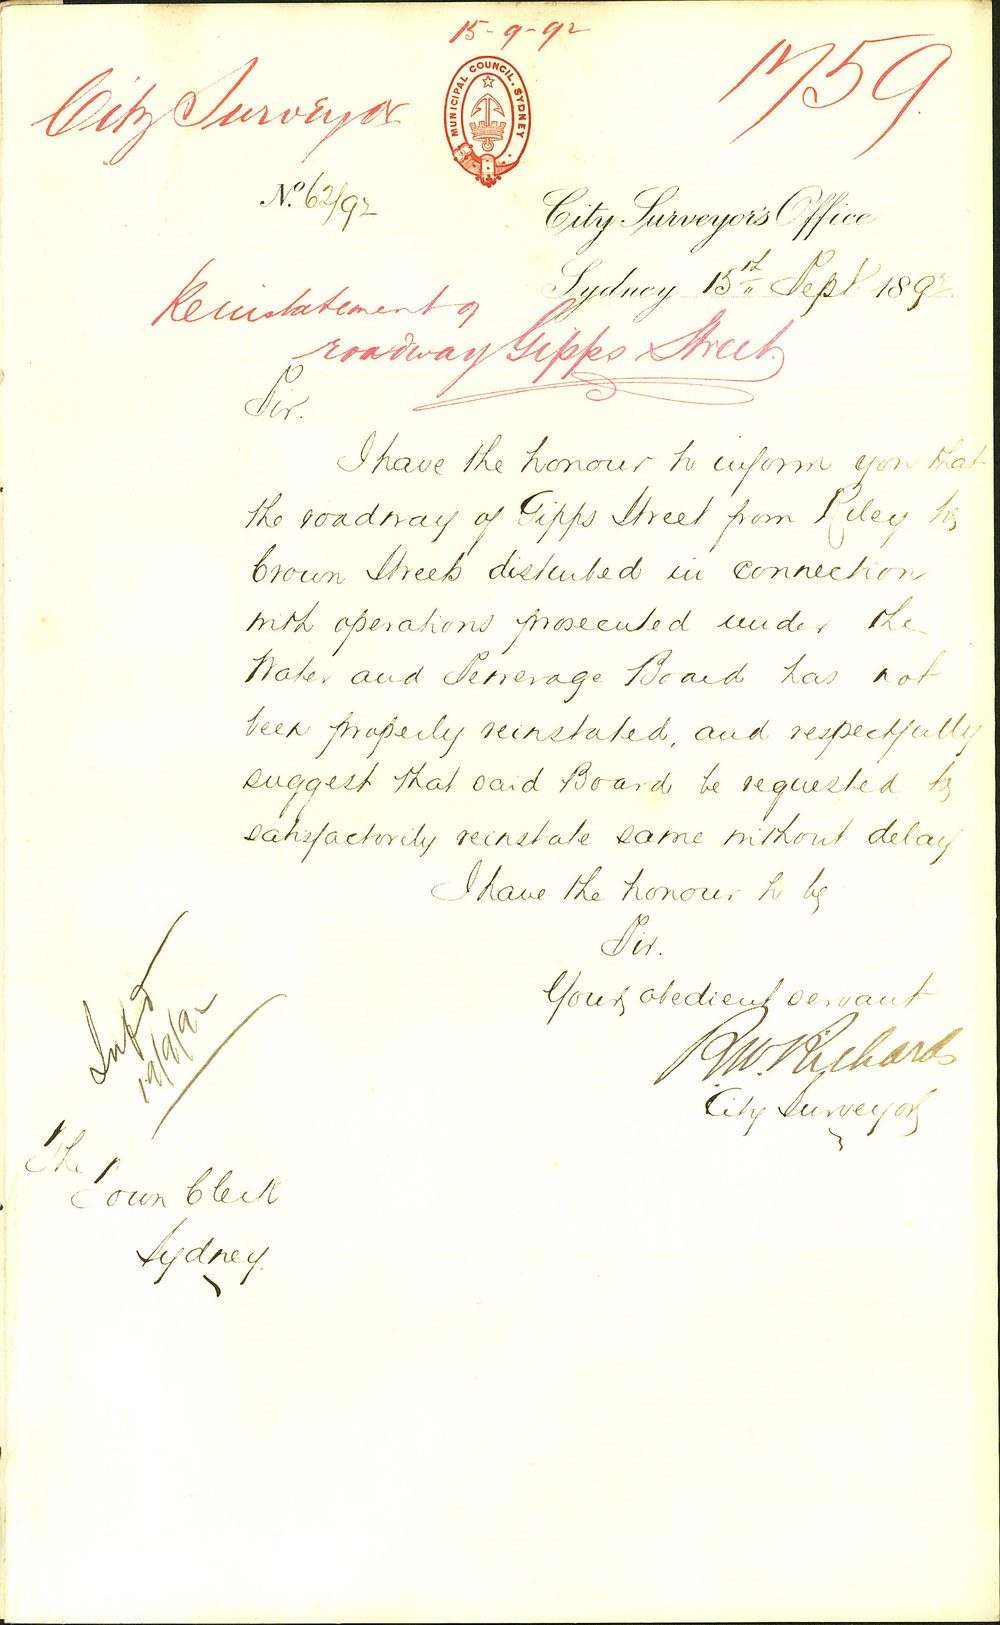 15-9-92
City Surveyor
MUNICIPAL COUNCIL, SYDNEY
1759.
No. 62/92
City Surveyor's Office
Sydney 15th Sept 1892
Reinstatement of
roadway Gipps Street.
Sir.
I have the honour to inform you that
the roadway of Gipps Street from Riley to
Crown Streets disturbed in connection
with operations prosecuted under the
Water and Sewerage Board has not
been properly reinstated, and respectfully
suggest that said Board be requested to
satisfactorily reinstate same without delay
I have the honour to be
Sir.
Your obedient servant
R.W. Richards
City Surveyor
19/9/92
The
Town Clerk
Sydney.